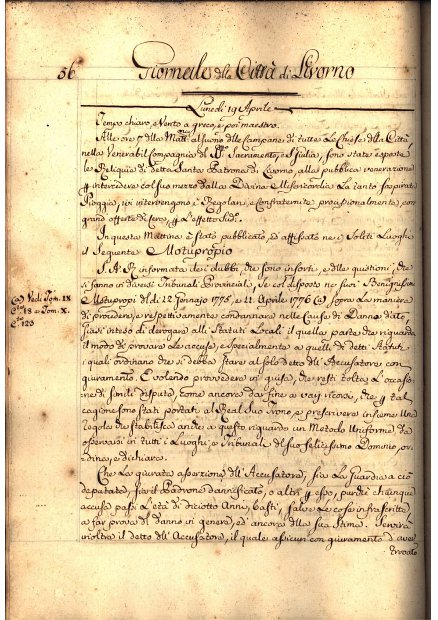 56
Giornale della Città di Livorno
Lunedì 19 Aprile
Tempo chiaro, e Vento a greco, e poi maestro.
Alle ore della Matt.na al suono delle Campane di tutte le Chiese della Città
nella Venerabil Compagnia del SS. Sacramento, e S. Giulia, sono state esposte
le Reliquie di detta Santa Patrona di Livorno, alla pubblica venerazione
intercedere col suo mezzo dalla Divina Misericordia la tanto sospirata
Pioggia, ivi intervengono i Regolari, e Confraternite processionalmente con
grand offerte di Cera, l'effetto Sud.o
In questa Mattina è stato pubblicato, ed affissato nei Soliti Luoghi
il Seguente Motuproprio
S. A. R. informata dei dubbj, che sono insorti, e delle questioni, che
si fanno in diversi Tribunali Provinciali, se col disposto nei suoi Benignissimi
Motupropj del dì 12 Gennajo 1775, e 11 Aprile 1776 (a) sopra la maniera
di procedere, e respettivamente condannare nelle Cause di Danno dato,
siasi inteso di derogare alli Statuti Locali in quella parte che riguarda
il modo di provare le accuse, e specialmente a quelli di detti Statuti,
i quali ordinano che si debba stare al solo detto dell'Accusatore con
giuramento. E volendo provvedere in guisa, che resti tolta l'occasio
ne di simili dispute, come ancora dar fine a varj ricorsi, che tal
cagione sono stati portati al Real Suo Trono, e prescrivere insieme una
regola che stabilisca anche a questo riguardo un Metodo Uniforme da
osservarsi in tutti i Luoghi, e Tribunali del suo felicissimo Dominio, or
dina, e dichiara.
Che la giurata asserzione dell'Accusatore, sia la Guardia a ciò
deputata, sia il Padrone dannificato, o altri esso, purchè chiunque
accusa passi l'età di diciotto Anni, basti, salve le cose infrascritte,
a far prova del danno in genere, ed ancora della sua Stima. Servirà
inoltre il detto dell'Accusatore, il quale assicuri con giuramento d'aver
trovato
(a) Vedi Tom. IX
C. 18 e Tom. X.
C. 123